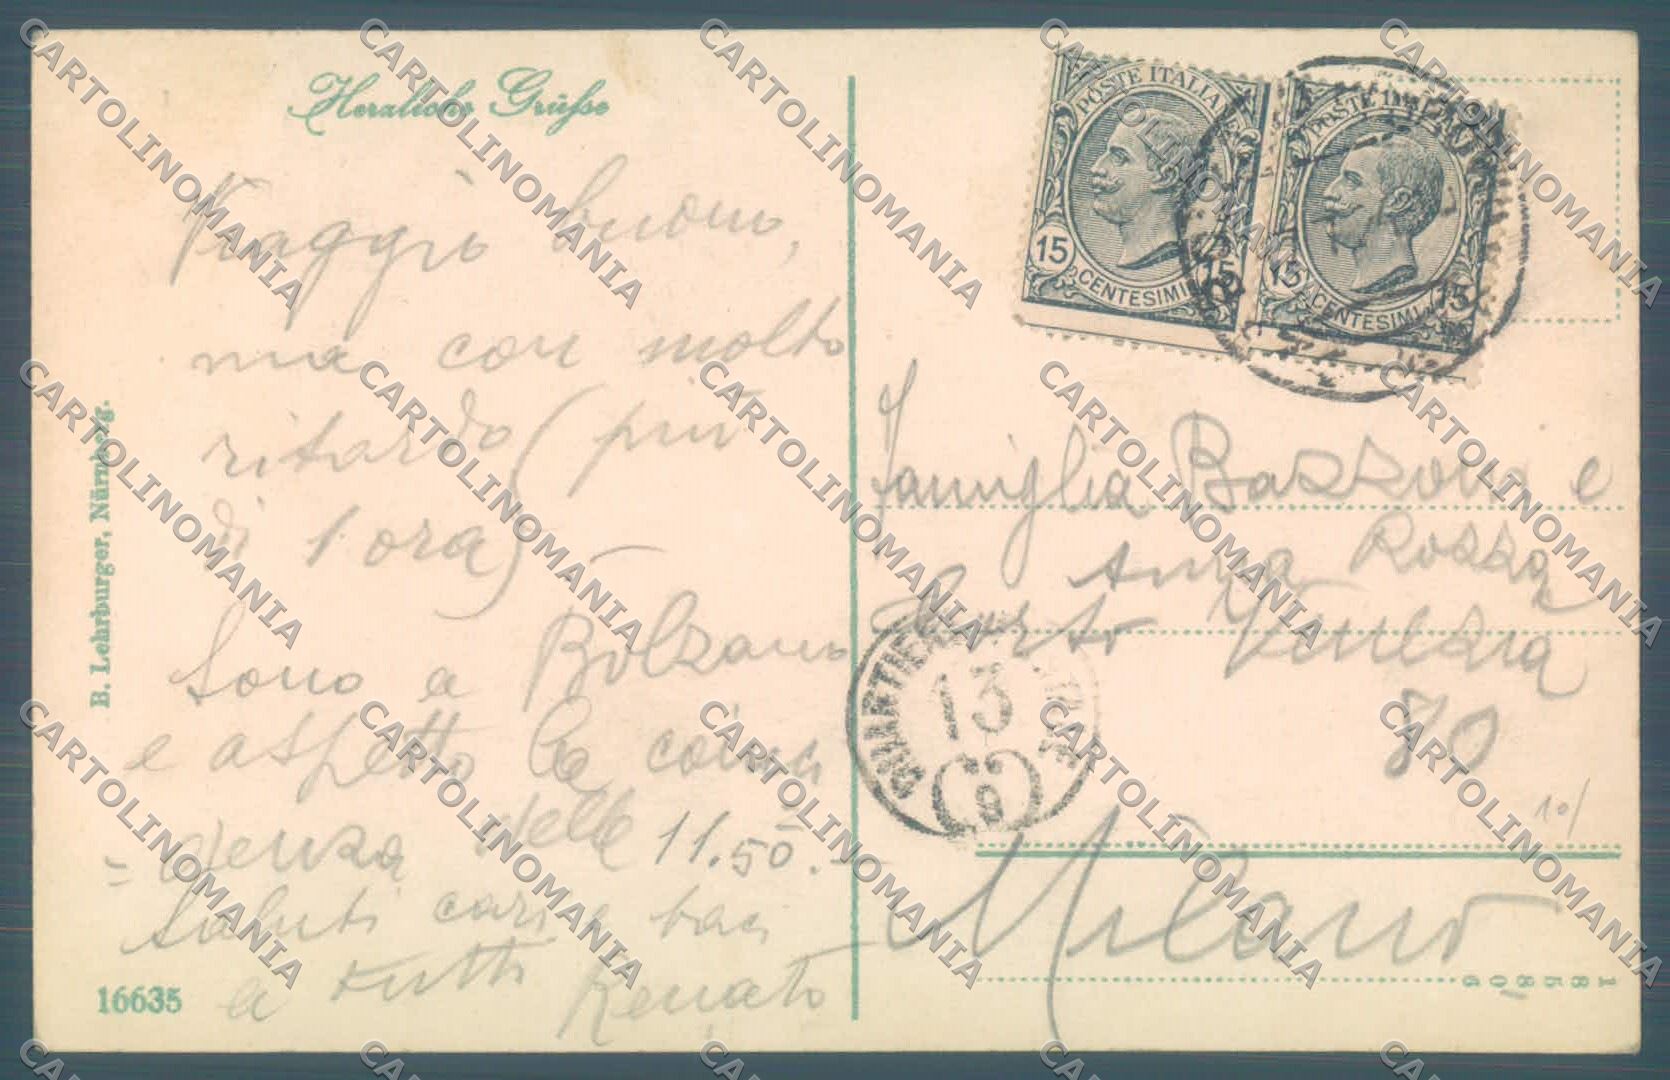 Herzliche Grüße
Viaggio buono,
ma con molto
ritardo (più
di 1 ora)
Sono a Bolzano
e aspetto la coinci
= denza delle 11.50.
Saluti cari e baci
a tutti Renato
B. Lehrburger, Nürnberg.
16635
POSTE ITALIANE
15 15
CENTESIMI
POSTE ITALIANE
15 15
CENTESIMI
Famiglia Bazzoni e
Anna Rossa
Corso Venezia
80
Milano
13
9
10/
CARTOLINOMANIA